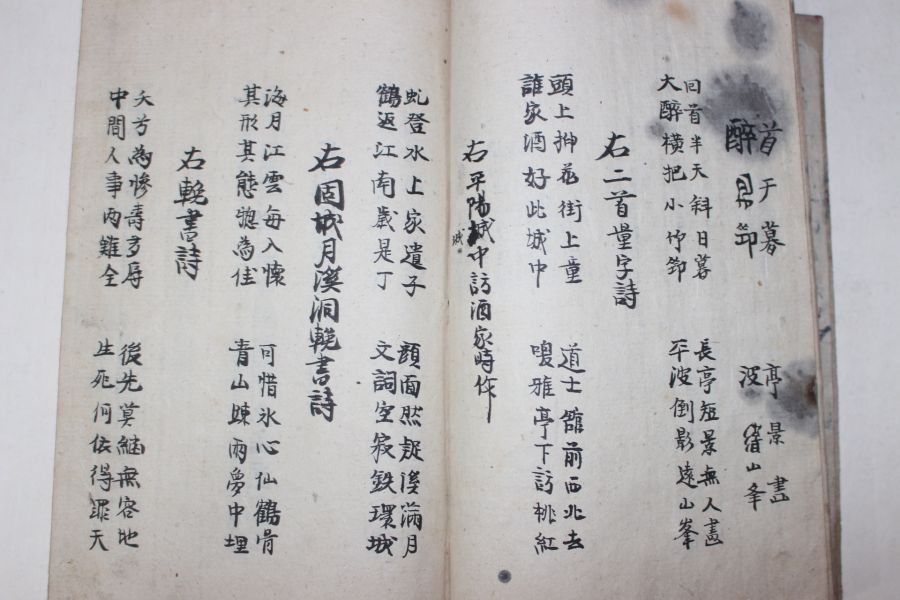 首 于 暮
醉 邛
亭 景 畵
波 山 峯
回首半天斜日暮
大醉橫把小竹邛
長亭短景無人畵
平波倒影遠山峯
右二首量字詩
頭上抑花街上童
誰家酒好此城中
道士舘前西北去
嗄雅亭下訪桃紅
右平陽城中訪酒家時作
城
虬登水上家遺子
鶴返江南歲是丁
顔面然疑溪滿月
文詞空寂鉄環城
右固城月溪洞輓書詩
海月江雲每入懷
其形其態惚為佳
可惜氷心仙鶴骨
青山踈雨夢中埋
右輓書詩
夭為慘壽多辱
中間人事两難全
後先莫緬無容地
生死何依得罪天